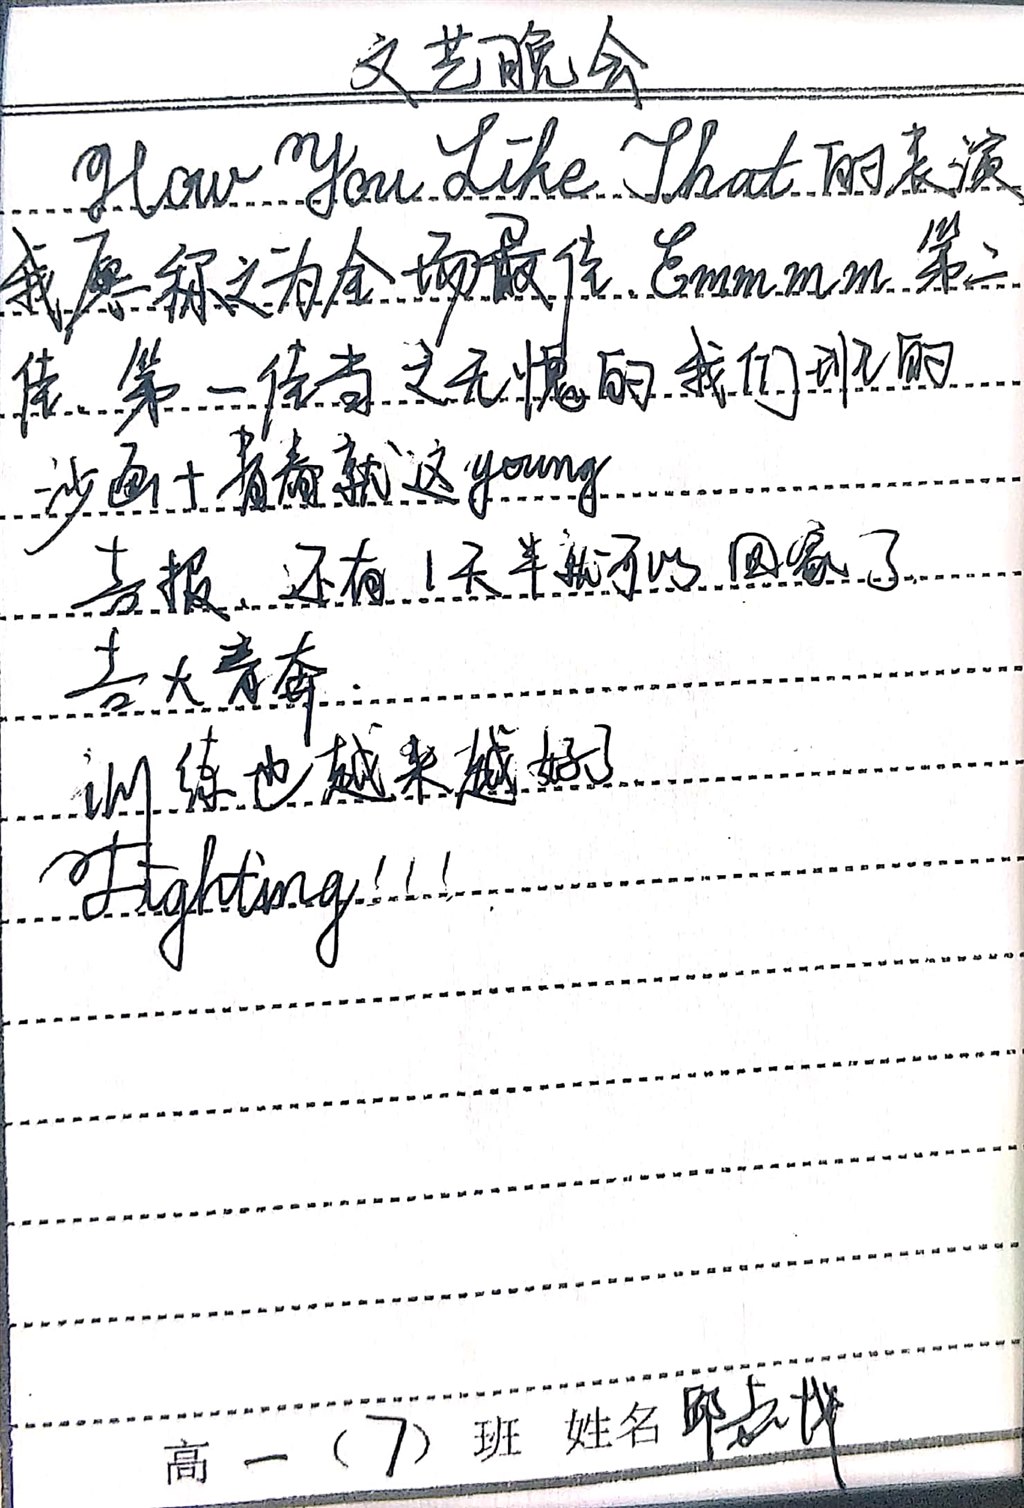 文艺晚会
How You Like That的表演
我愿称之为全场最佳.Emmmmm第二
佳.第一佳当之无愧的我们班的
沙画+青春就这young
喜报.还有1天半就可以回家了
喜大普奔.
训练也越来越好了
Fighting!!!
高一(7)班 姓名邱